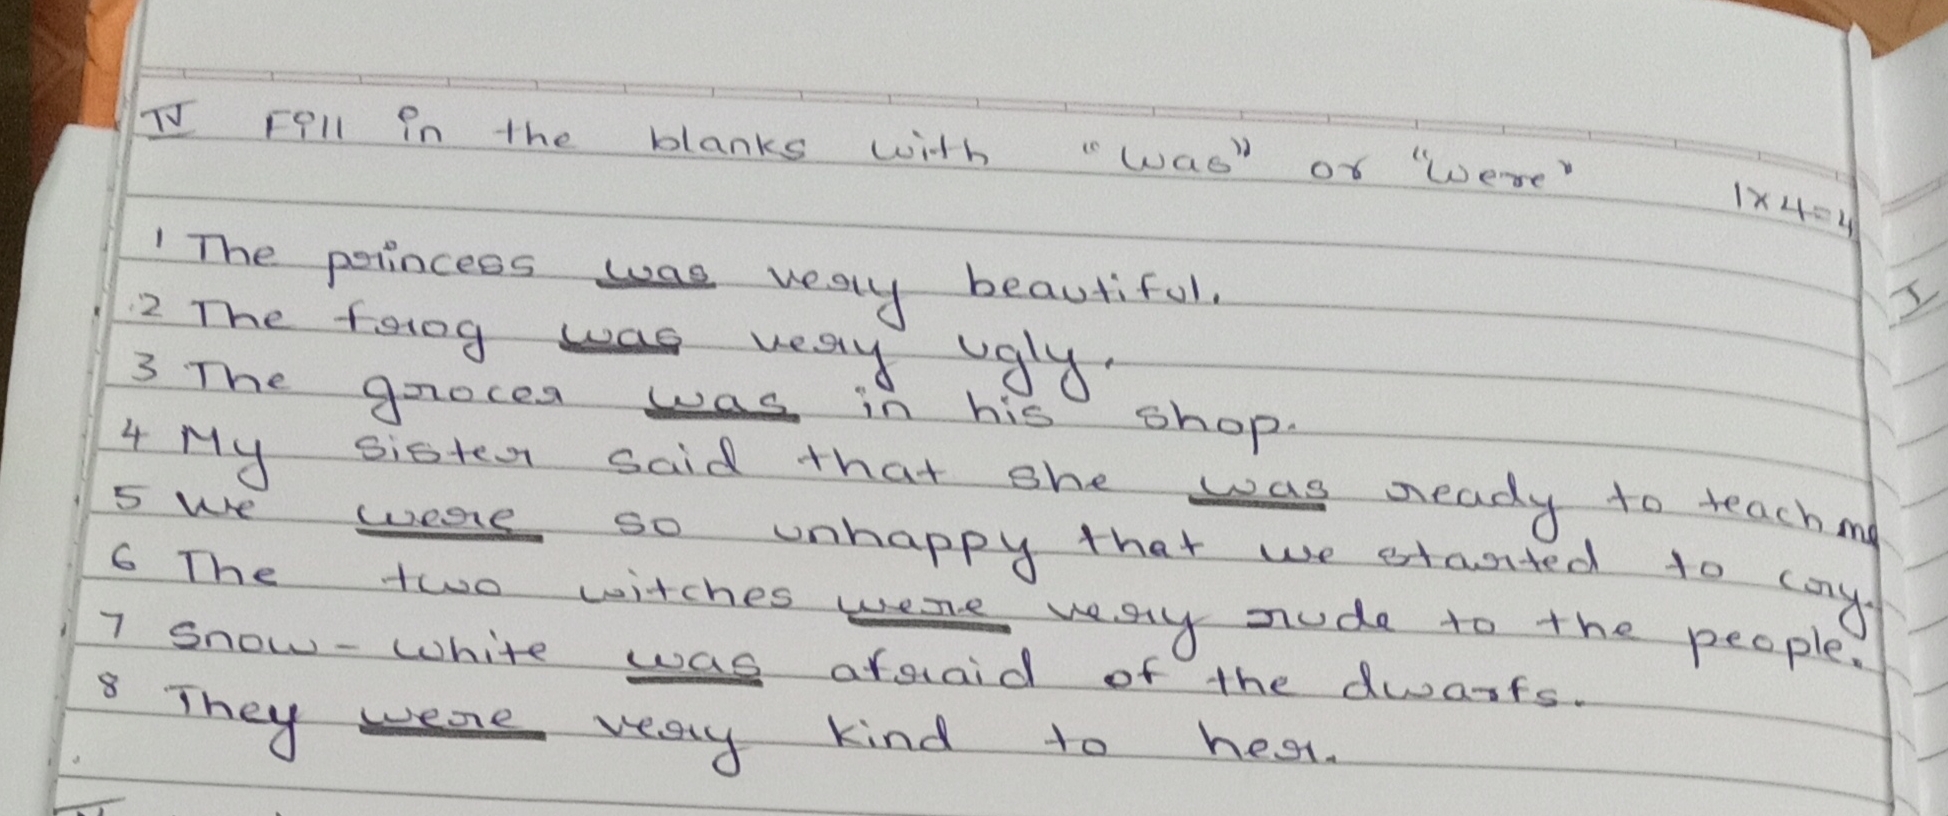 IV Fill in the blanks with "was" or "were" 1×4=4
1 The princess was very beautiful.
2 The frog was very ugly.
3 The grocer was in his shop.
4 My sister said that she was ready to teach me
5 We were so unhappy that we started to cry.
6 The two witches were very rude to the people.
7 Snow-white was afraid of the dwarfs.
8 They were very kind to her.